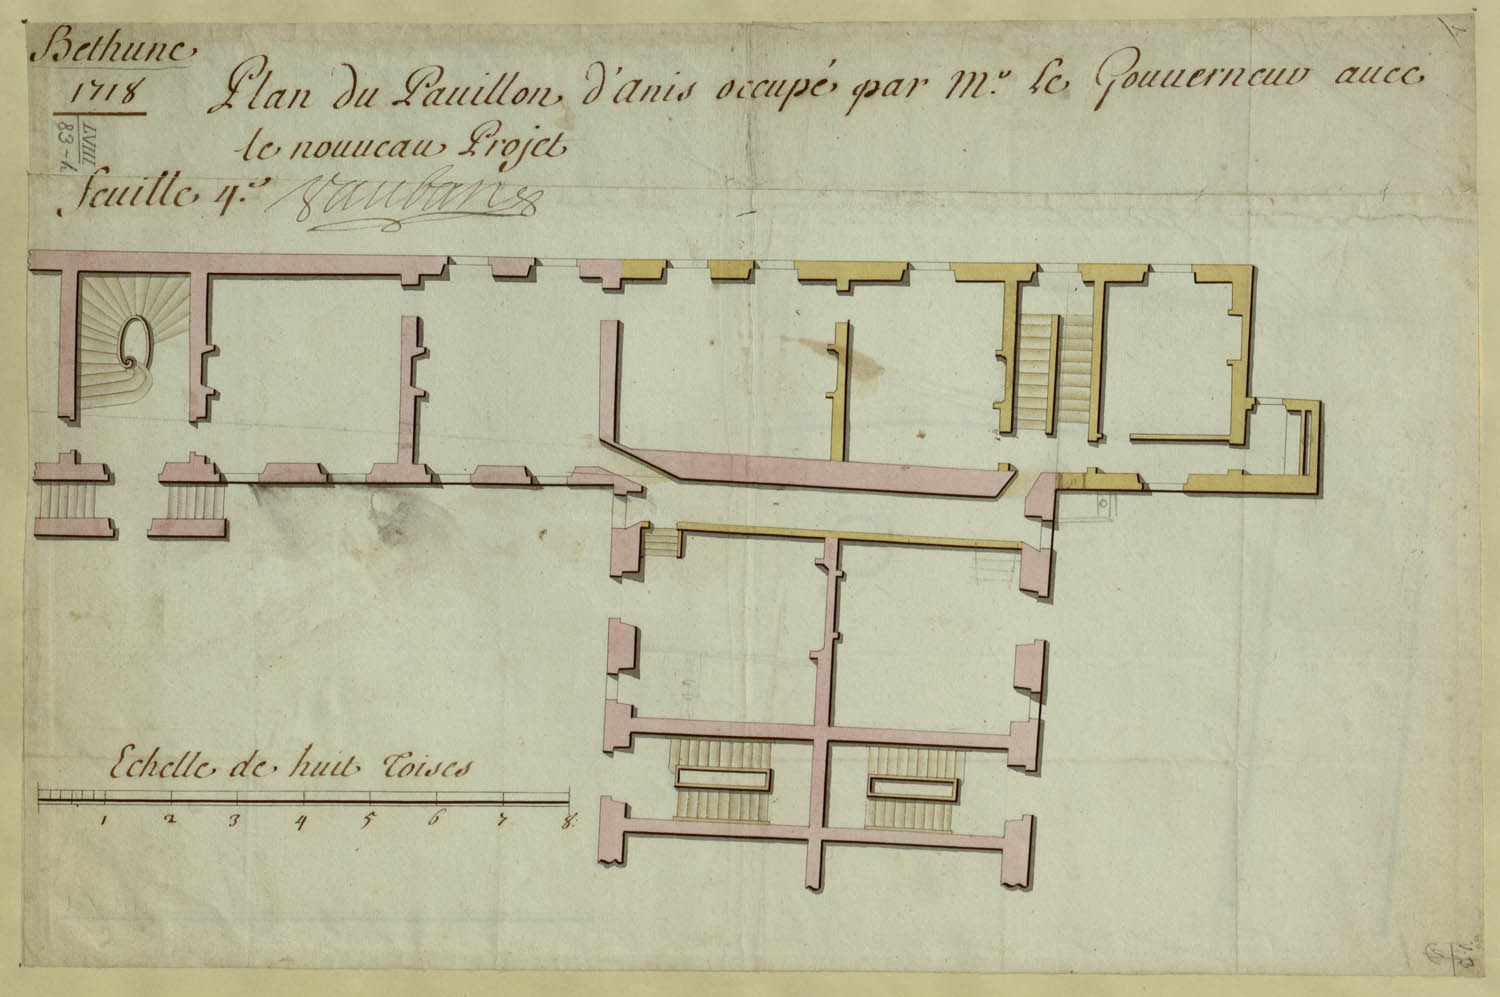 Bethune
1718
Plan du Pauillon d'anis occupé par Mr. le Gouuerneur auec
le nouueau Projet
feuille 4.e
Vauban
LVIII
83-h
Echelle de huit Toises
1 2 3 4 5 6 7 8.